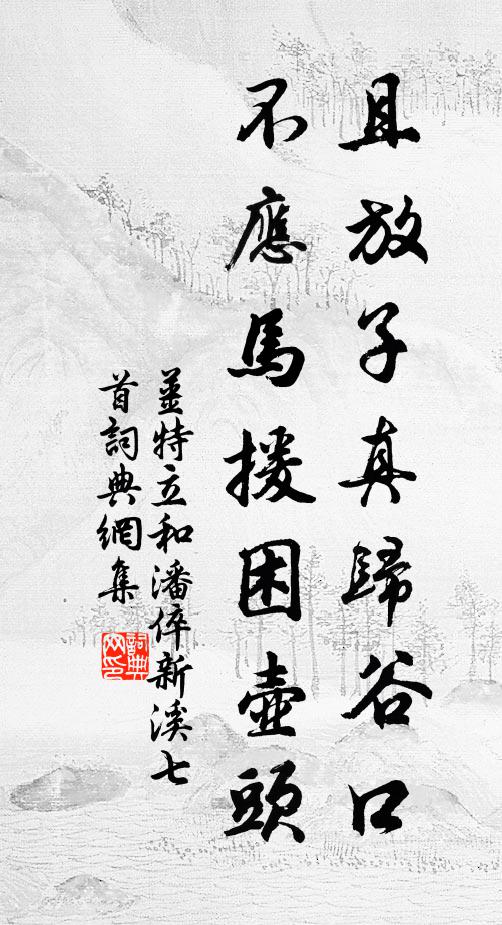 且放子真歸谷口
不應馬援困壺頭
薑特立和潘倅新溪七
首詞典網集
詞典
网印